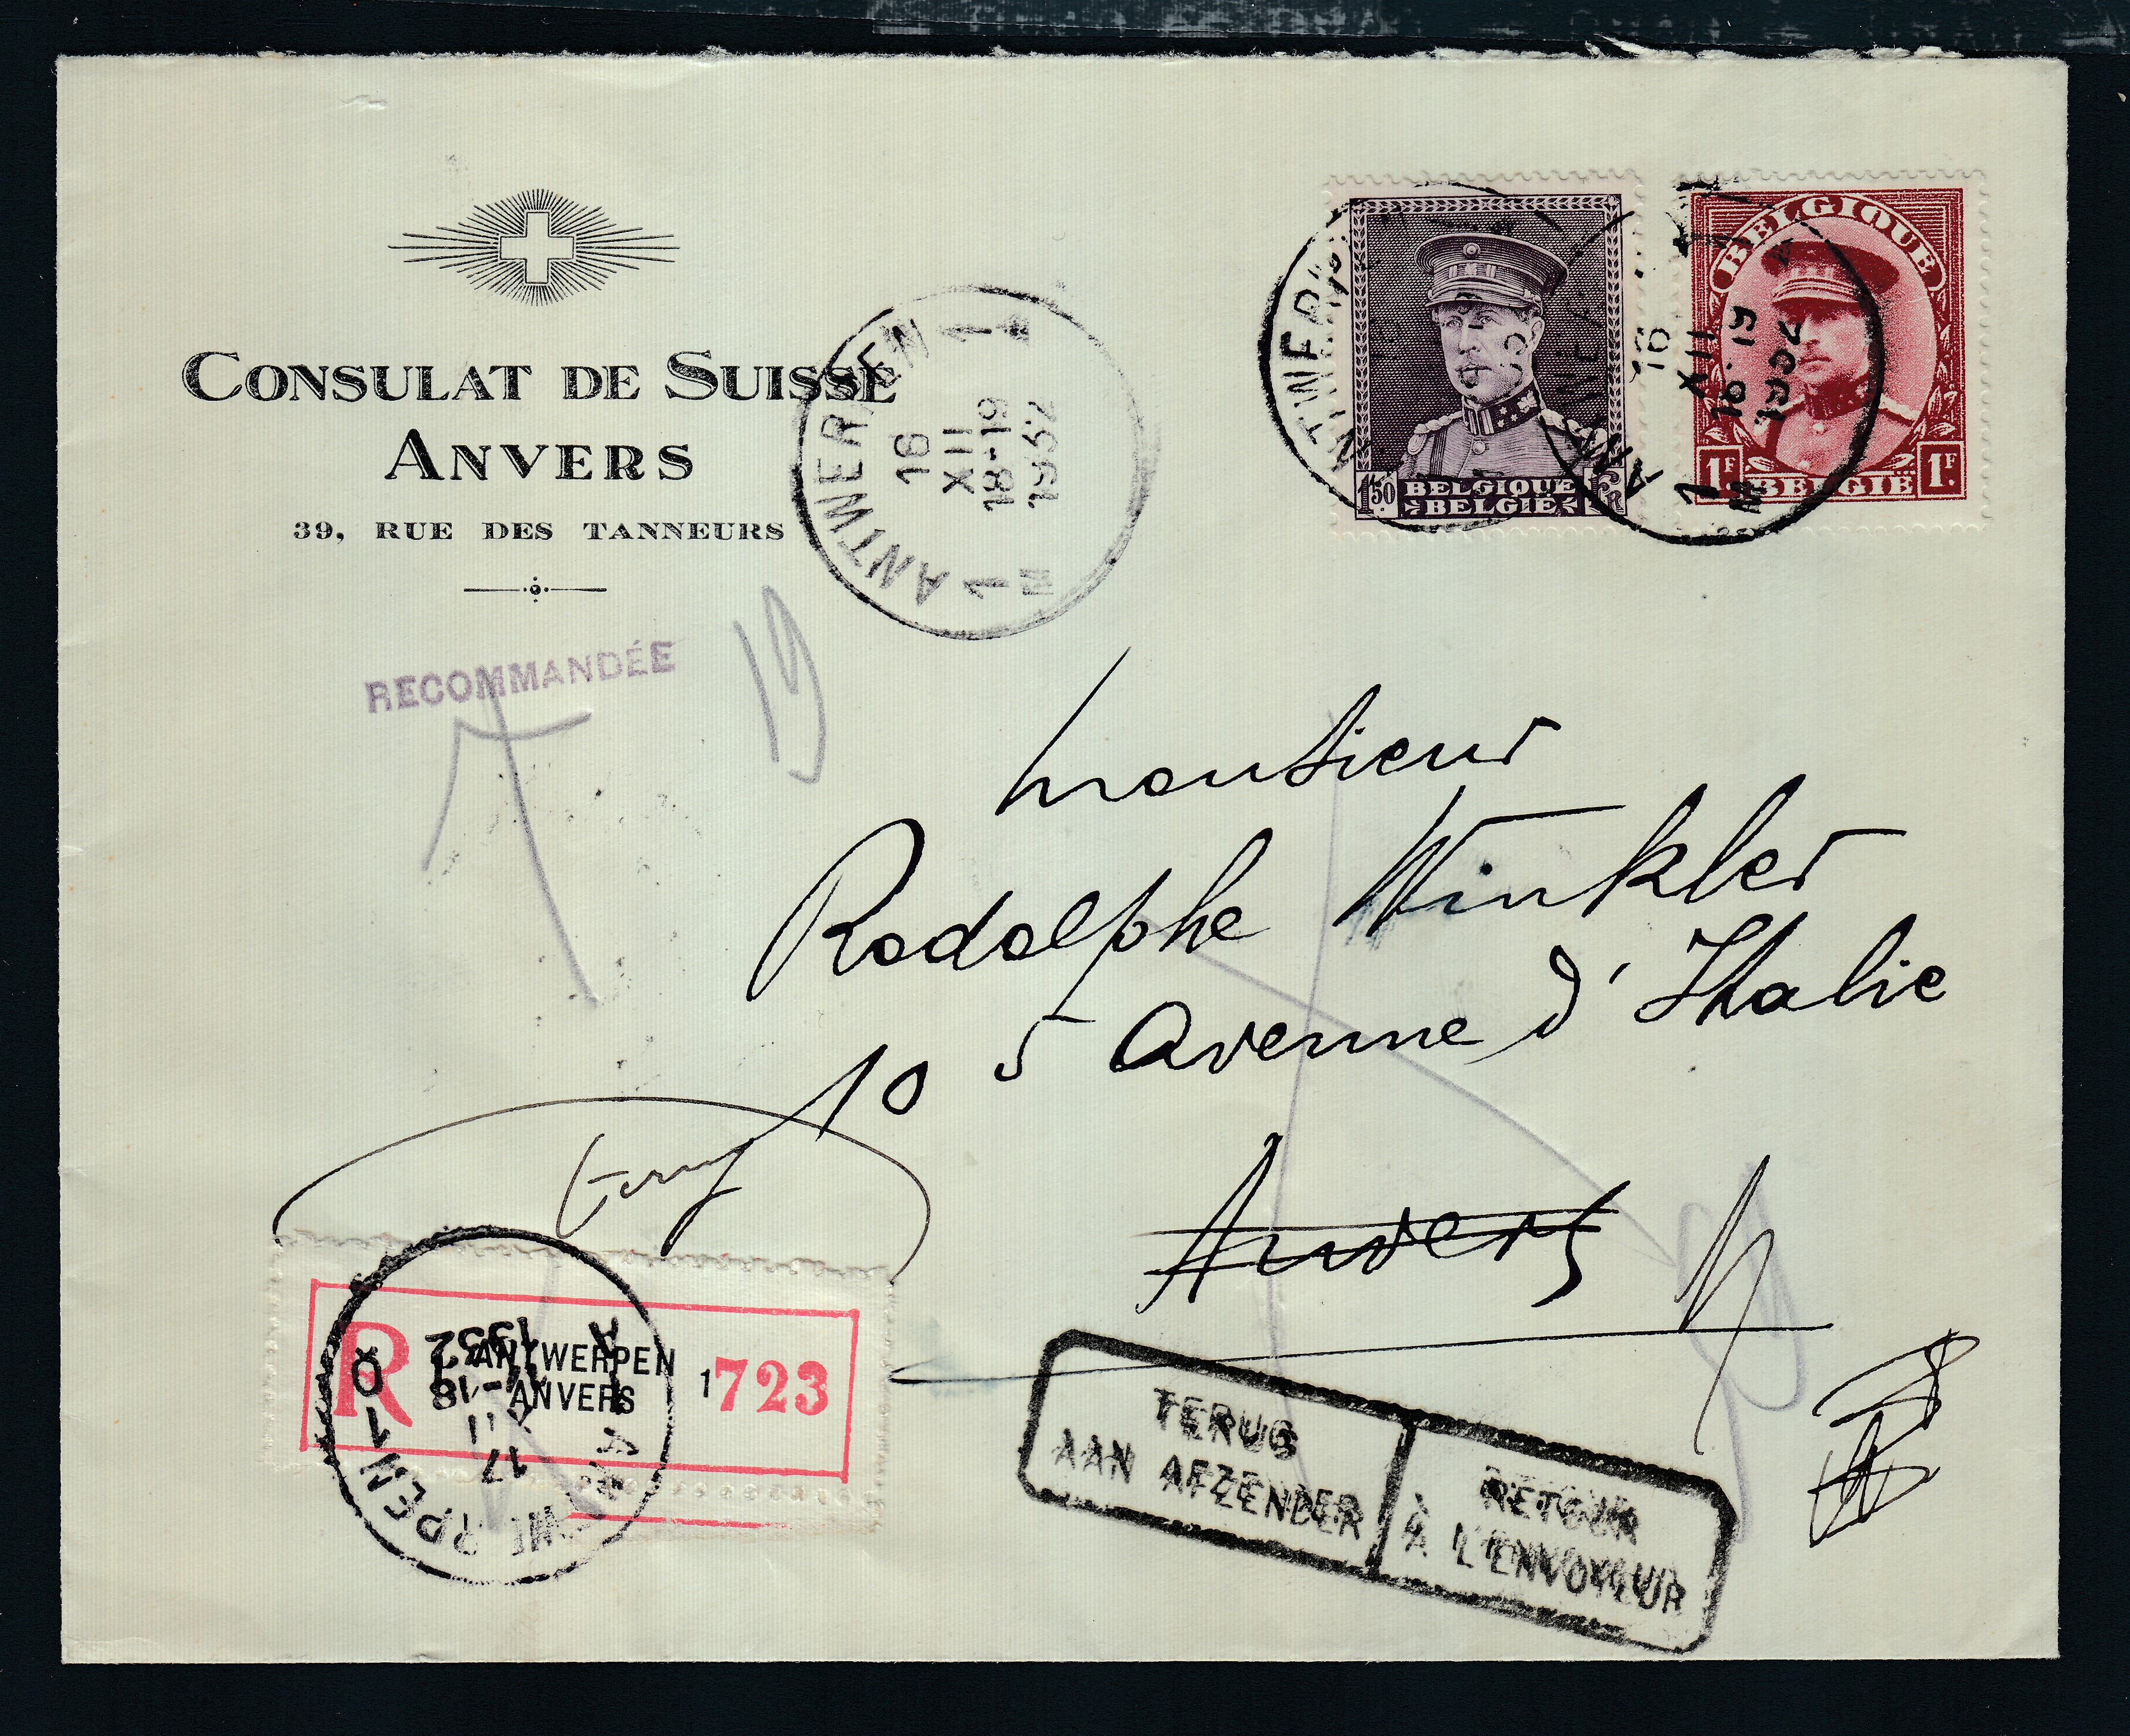 CONSULAT DE SUISSE
ANVERS
39, RUE DES TANNEURS
ANTWERPEN 1
16
XII
18-19
1932
1 M
BELGIQUE
BELGIË
1.50 FR
16
XII
18-19
1932
1 M
BELGIQUE
BELGIË
1F 1F
RECOMMANDÉE
19
Monsieur
Rodolphe Winkler
105 Avenue d'Italie
Anvers
R
ANTWERPEN 1
ANVERS 1
723
ANTWERPEN 1
17
XII
1932
TERUG
AAN AFZENDER
RETOUR
À L'ENVOYEUR